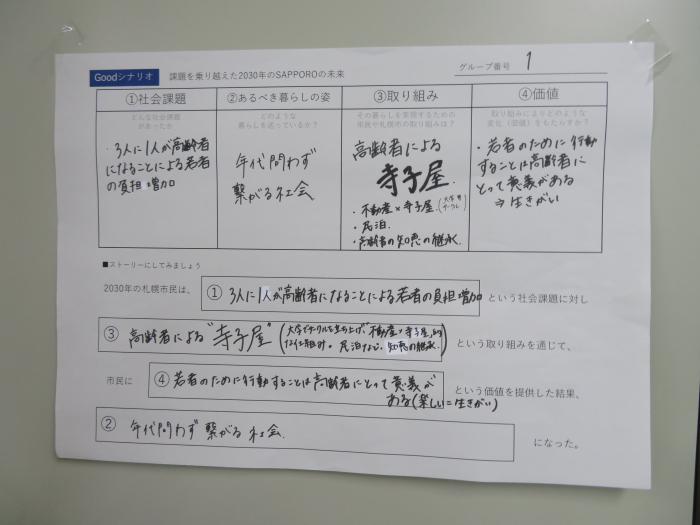 Goodシナリオ 課題を乗り越えた2030年のSAPPOROの未来 グループ番号 1
①社会課題 ②あるべき暮らしの姿 ③取り組み ④価値
どんな社会課題があったか
どのような暮らしを送っているか?
その暮らしを実現するための市民や札幌市の取り組みは?
取り組みによりどのような変化（価値）をもたらすか?
・3人に1人が高齢者
になることによる若者
の負担増加
年代問わず
繋がる社会
高齢者による
寺子屋.
・不動産×寺子屋.
・民泊.
・高齢者の知恵の継承.
・若者のために行動
することは高齢者に
とって意義がある
⇒生きがい
■ストーリーにしてみましょう
2030年の札幌市民は、 ① 3人に1人が高齢者になることによる若者の負担増加 という社会課題に対し
③ 高齢者による"寺子屋" という取り組みを通じて、
民泊など. 知恵の継承.
市民に ④ 若者のために行動することは高齢者にとって意義が という価値を提供した結果、
ある(楽しい=生きがい)
② 年代問わず繋がる社会. になった。